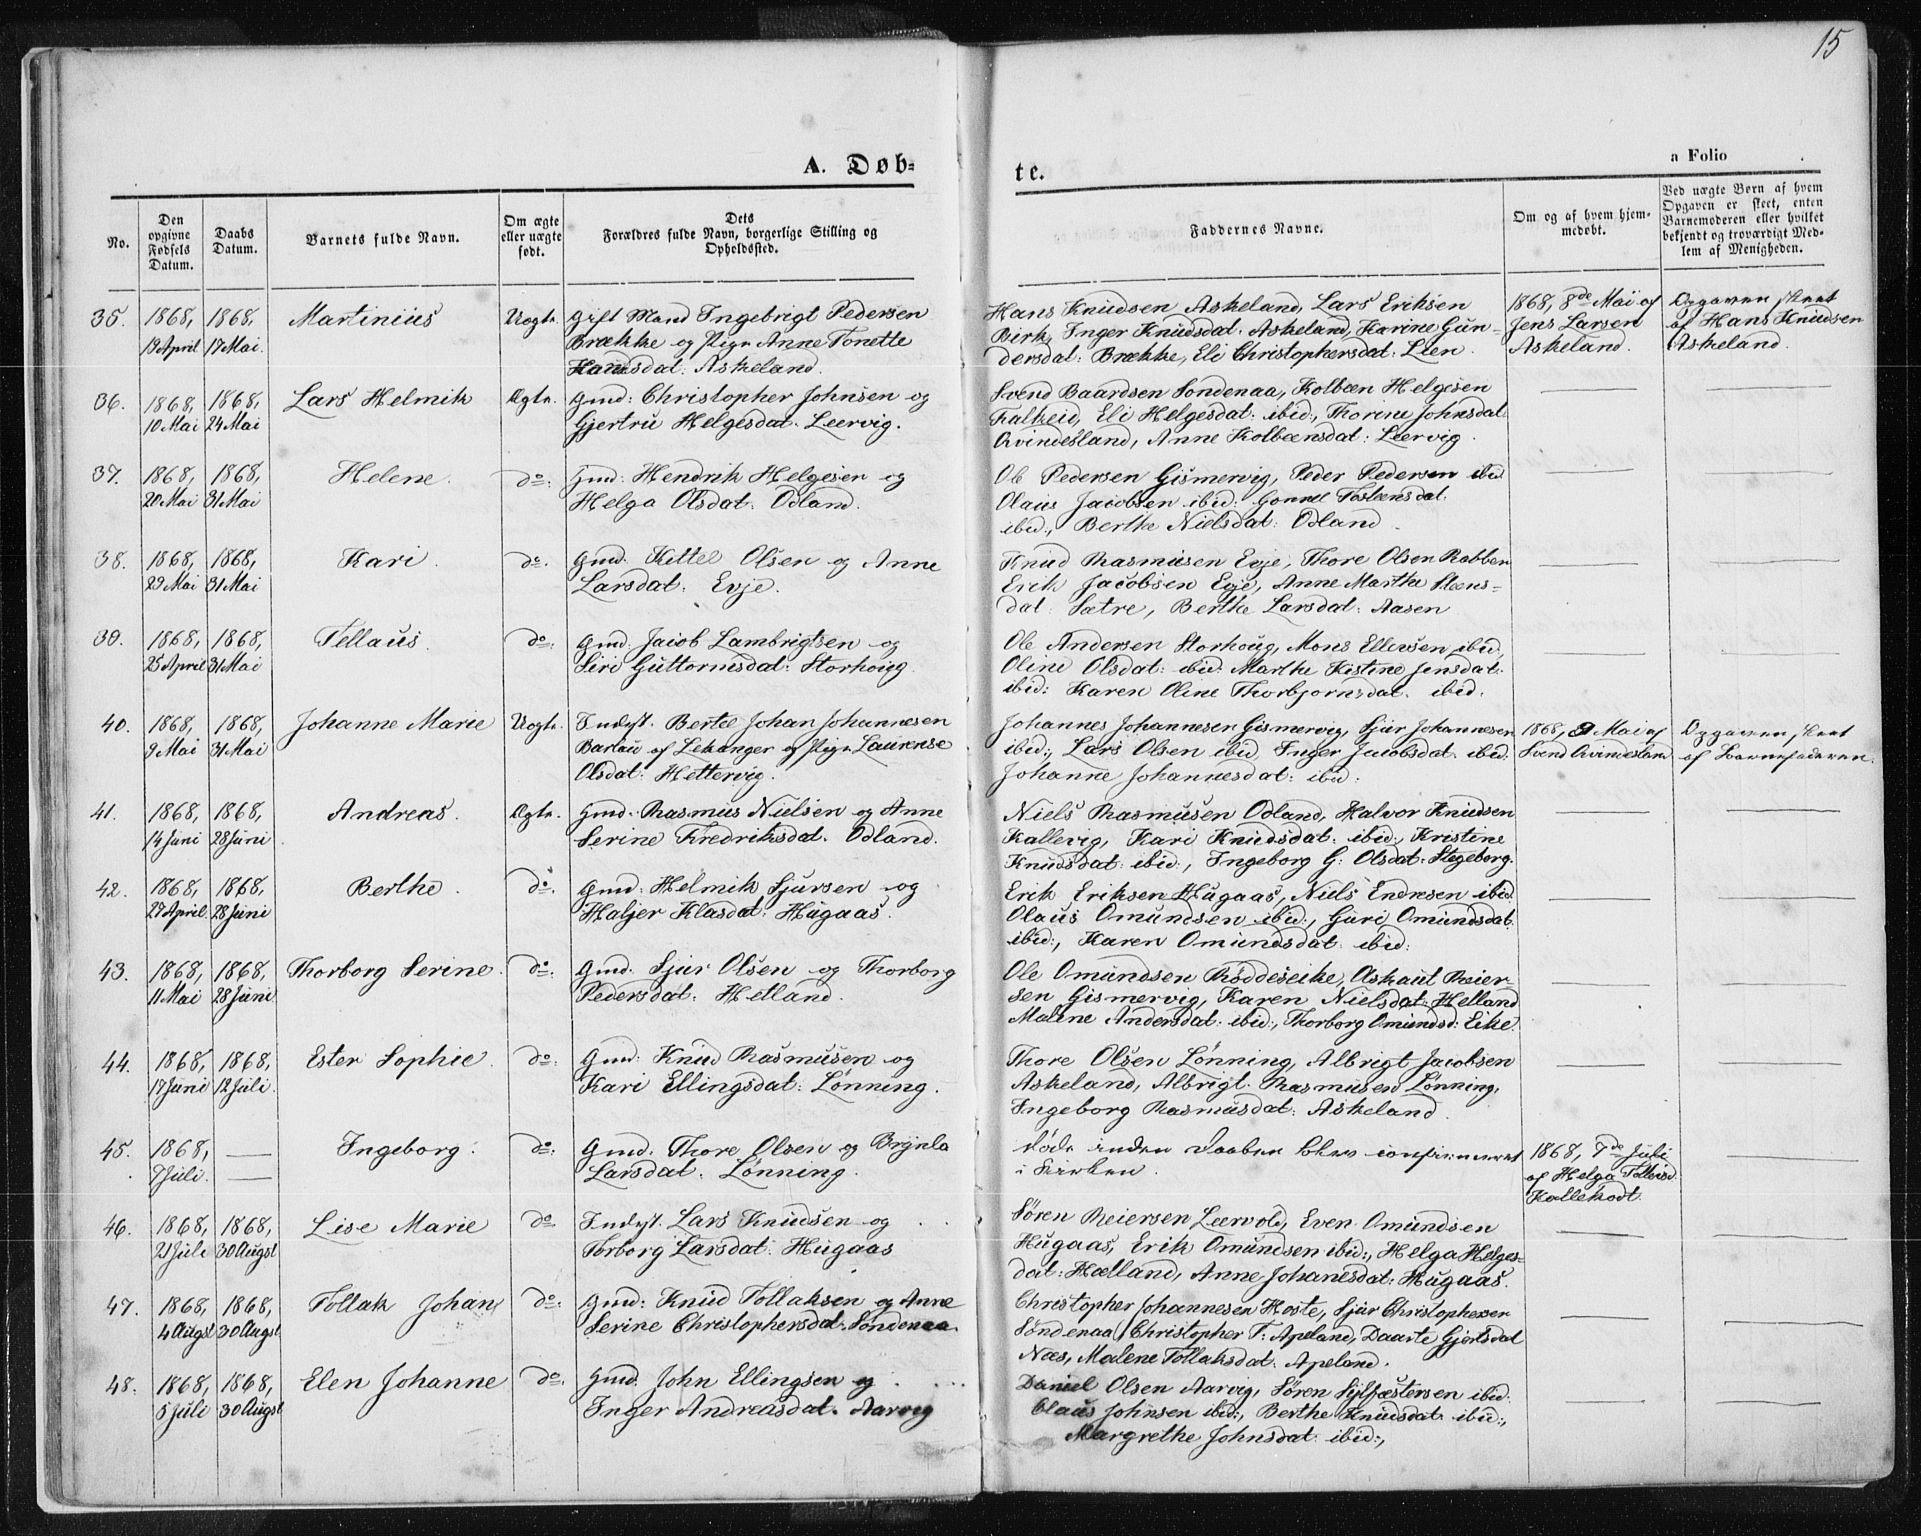 15
A. Døb-
te.
a Folio
No.
Den opgivne Fødsels Datum.
Daabs Datum.
Barnets fulde Navn.
Om ægte eller uægte født.
Dets Forældres fulde Navn, borgerlige Stilling og Opholdssted.
Faddernes Navne.
Om og af hvem hjemmedøbt.
Ved uægte Børn af hvem Opgaven er skeet, enten Barnemoderen eller hvilket bekjendt og troværdigt Medlem af Menigheden.
35. 1868, 1868, Martinius Uægte. Gift Mand Ingebrigt Pedersen
19 April 17 Mai. Brække og Pige Anne Tonette
Askeland.
Hans Knudsen Askeland, Lars Eriksen
Birk, Inger Knudsdat: Askeland, Karine Gun-
dersdat: Brække, Eli Christophersdat: Leen.
1868, 8de Mai af
Jens Larsen
Askeland.
Opgaven skeet
af Hans Knudsen
Askeland.
36. 1868, 1868, Lars Helmik Ægte. Gmd: Christopher Johnsen og
10 Mai 24 Mai Gjertru Helgesdat: Leervig.
Svend Baardsen Søndenaa, Kolbæn Helgesen
Falkeid, Eli Helgesdat: ibid:, Thorine Johnsdat.
Qvindesland, Anne Kolbænsdat: Leervig.
37. 1868, 1868, Helene. do: Gmd: Hendrik Helgesen og
20 Mai 31 Mai Helga Olsdat: Odland.
Ole Pedersen Gismervig, Peder Pedersen ibid
Olaus Jacobsen ibid: Gonnel
ibid., Berthe Nielsdat: Odland.
38. 1868, 1868, Kari. do. Gmd. Kettel Olsen og Anne
29 Mai 31 Mai Larsdat: Evje.
Knud Rasmusen Evje, Thore Olsen Rabben
Erik Jacobsen Evje, Anne Marthe Steens-
dat: Sætre, Berthe Larsdat: Aasen
39. 1868, 1868, Tellaus. do: Gmd. Jacob Lambrigtsen og
25 April 31 Mai Siri Guttormsdat: Storhoug.
Ole Andersen Storhoug, Mons Ellevsen ibid,
Oline Olsdat: ibid: Marthe Kistine Jensdat:
ibid: Karen Oline Thorbjørnsdat. ibid.
40. 1868, 1868, Johanne Marie Uægte. Indst. Bertel Johan Johannesen
9 Mai 31 Mai af Lekanger og Pige Laurense
Olsdat: Hettervig.
Johannes Johannesen Gismervig, Sjur Johannesen
ibid:, Lars Olsen ibid, Inger Jacobsdat. ibid:
Johanne Johannesdat: ibid.
1868, 9 Mai af
Svend Qvindesland
Opgaven skeet
af Barnefaderen.
41. 1868, 1868, Andreas. Ægte. Gmd: Rasmus Nielsen og Anne
14 Juni 28 Juni Serine Fredriksdat. Odland.
Niels Rasmusen Odland, Halvor Knudsen
Kallevig, Kari Knudsdat: ibid:, Kristine
Knudsdat: ibid:, Ingeborg G: Olsdat: Stegeborg.
42. 1868, 1868, Berthe. do. Gmd: Helmik Sjursen og
27 April. 28 Juni Haljer Klasdat: Hugaas.
Erik Eriksen Hugaas, Niels Endresen ibid.
Olaus Omundsen ibid:, Guri Omundsdat.
ibid:, Karen Omundsdat: ibid:
43. 1868, 1868, Thorborg Serine. do: Gmd. Sjur Olsen og Thorborg
11 Mai 28 Juni Pedersdat: Helland.
Ole Omundsen Røddeseike, Askaut Reier-
sen Gismervig, Karen Nielsdat: Helland
Malene Andersdat: ibid:, Thorborg Omundsd: Eike.
44. 1868, 1868, Ester Sophie. do: Gmd: Knud Rasmusen og
17 Juni 12 Juli. Kari Ellingsdat: Lønning.
Thore Olsen Lønning, Albrigt Jacobsen
Askeland, Albrigt Rasmusen Lønning,
Ingeborg Rasmusdat: Askeland.
45. 1868, Ingeborg. do: Gmd. Thore Olsen og Brynla
7 Juli. Larsdat: Lønning.
døde inden Daaben blev confirmeret
i Kirken.
1868, 7de Juli
af Helga Tollevsd.
46. 1868, 1868, Lise Marie do Indst. Lars Knudsen og
21 Juli 30 Augst Torborg Larsdat: Hugaas
Søren Reiersen Leervold, Even Omundsen
Hugaas, Erik Omundsen ibid:, Helga Helges-
dat: Hælland, Anne Johanesdat: Hugaas.
47. 1868, 1868, Tollak Johan do: Gmd: Knud Tollaksen og Anne
4 Augst 30 Augst Serine Christophersdat: Søndenaa.
Christopher Johannesen Høste, Sjur Christophersen
Søndenaa, Christopher T: Apeland, Daarte Gjertsdat
Næs, Malene Tollaksdat: Apeland.
48. 1868, 1868, Elen Johanne do. Gmd. John Ellingsen og
5 Juli 30 Augst Inger Andreasdat. Aarvig
Daniel Olsen Aarvig, Søren Sylfæstersen ibid:
Claus Johnsen ibid:, Berthe Knudsdat: ibid:,
Margrethe Johnsdat: ibid:,